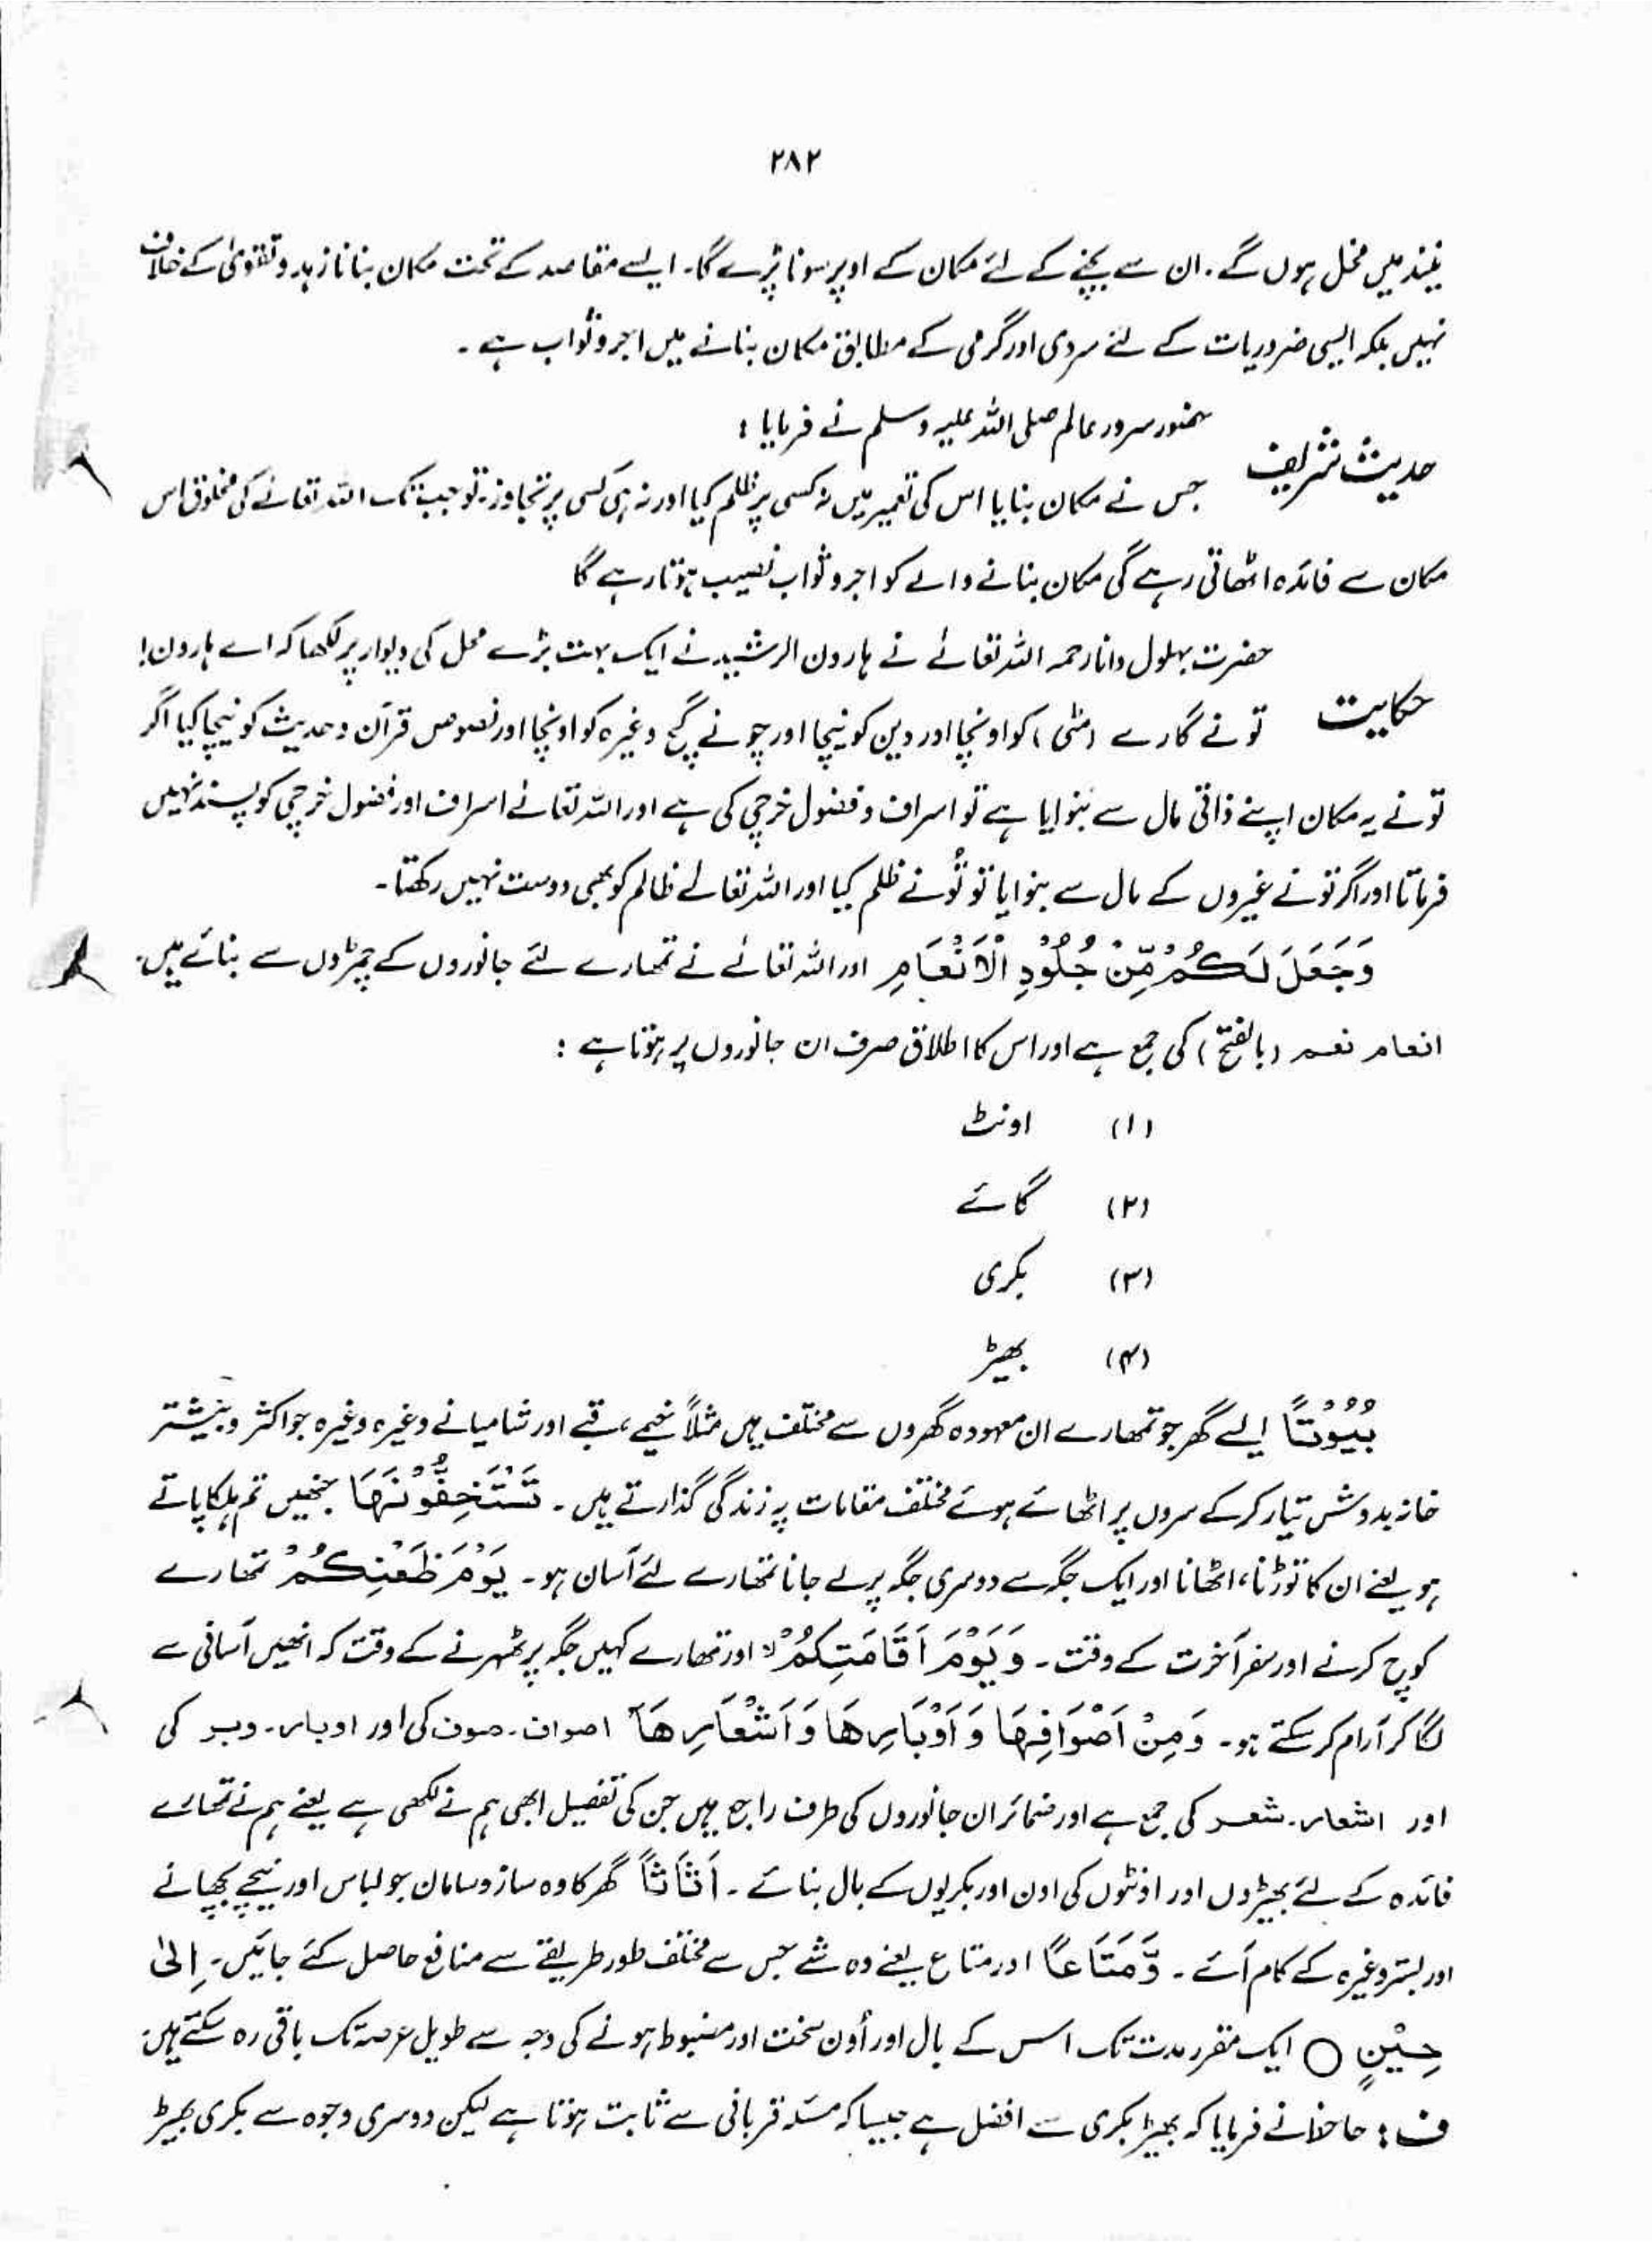 ۲۸۲
نیند میں مخل ہوں گے۔ ان سے بچنے کے لئے مکان کے اوپر سونا پڑے گا۔ ایسے مقاصد کے تحت مکان بنانا زہد و تقویٰ کے خلاف
نہیں بلکہ ایسی ضروریات کے لئے سردی اور گرمی کے مطابق مکان بنانے میں اجر و ثواب ہے۔
حضور سرور عالم صلی اللہ علیہ وسلم نے فرمایا :
حدیث شریف
جس نے مکان بنایا اس کی تعمیر میں نہ کسی پر ظلم کیا اور نہ ہی کسی پر تجاوز۔ تو جب تک اللہ تعالےٰ کی مخلوق اس
مکان سے فائدہ اٹھاتی رہے گی مکان بنانے والے کو اجر و ثواب نصیب ہوتا رہے گا
حضرت بہلول دانا رحمہ اللہ تعالےٰ نے ہارون الرشید نے ایک بہت بڑے محل کی دیوار پر لکھا کہ اے ہارون!
حکایت
تو نے گارے (مٹی) کو اونچا اور دین کو نیچا اور چونے گچ وغیرہ کو اونچا اور نصوص قرآن و حدیث کو نیچا کیا اگر
تو نے یہ مکان اپنے ذاتی مال سے بنوایا ہے تو اسراف و فضول خرچی کی ہے اور اللہ تعالےٰ اسراف اور فضول خرچی کو پسند نہیں
فرماتا اور اگر تو نے غیروں کے مال سے بنوایا تو تُو نے ظلم کیا اور اللہ تعالےٰ ظالم کو بھی دوست نہیں رکھتا۔
وَجَعَلَ لَكُمْ مِّنْ جُلُوْدِ الْاَنْعَامِ اور اللہ تعالےٰ نے تمھارے لئے جانوروں کے چمڑوں سے بنائے ہیں۔
انعام نعم (بالفتح) کی جمع ہے اور اس کا اطلاق صرف ان جانوروں پر ہوتا ہے :
(۱) اونٹ
(۲) گائے
(۳) بکری
(۴) بھیڑ
بُیُوْتًا ایسے گھر جو تمھارے ان معہودہ گھروں سے مختلف ہیں مثلاً خیمے، قبے اور شامیانے وغیرہ وغیرہ جو اکثر و بیشتر
خانہ بدوش تیار کر کے سروں پر اٹھائے ہوئے مختلف مقامات پہ زندگی گذارتے ہیں۔ تَسْتَخِفُّوْنَهَا جنھیں تم ہلکا پاتے
ہو یعنے ان کا توڑنا، اٹھانا اور ایک جگہ سے دوسری جگہ پر لے جانا تمھارے لئے آسان ہو۔ یَوْمَ ظَعْنِكُمْ تمھارے
کوچ کرنے اور سفر آخرت کے وقت۔ وَ یَوْمَ اَقَامَتِكُمْ ۙ اور تمھارے کہیں جگہ پر ٹھہرنے کے وقت کہ انھیں آسانی سے
لگا کر آرام کر سکتے ہو۔ وَمِنْ اَصْوَافِهَا وَ اَوْبَارِهَا وَ اَشْعَارِهَا اصواف۔ صوف کی اور اوبار۔ وبر کی
اور اشعار۔ شعر کی جمع ہے اور ضمائر ان جانوروں کی طرف راجع ہیں جن کی تفصیل ابھی ہم نے لکھی ہے یعنے ہم نے تمھارے
فائدہ کے لئے بھیڑوں اور اونٹوں کی اون اور بکریوں کے بال بنائے۔ اَثَاثًا گھر کا وہ ساز و سامان جو لباس اور نیچے بچھانے
اور بستر وغیرہ کے کام آئے۔ وَّمَتَاعًا اور متاع یعنے وہ شے جس سے مختلف طور طریقے سے منافع حاصل کئے جائیں۔ اِلیٰ
حِیْنٍ ○ ایک مقرر مدت تک اس کے بال اور اُون سخت اور مضبوط ہونے کی وجہ سے طویل عرصہ تک باقی رہ سکتے ہیں۔
ف : جاحظ نے فرمایا کہ بھیڑ بکری سے افضل ہے جیسا کہ مسئلہ قربانی سے ثابت ہوتا ہے لیکن دوسری وجوہ سے بکری بھیڑ